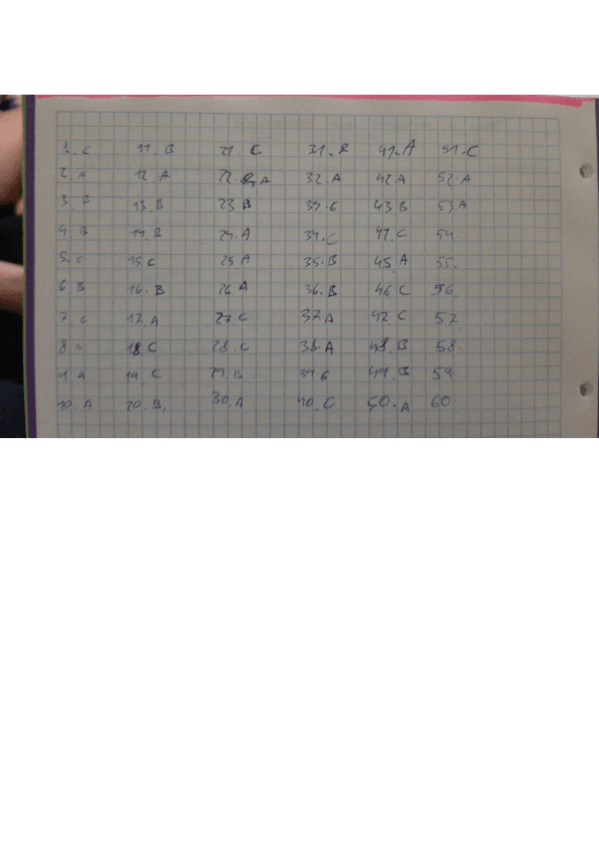 1. C 11. B 21. C 31. 41. A 51. C
2. A 12. A 22. A 32. A 42. A 52. A
3. B 13. B 23 B 43 B 53. A
4. B 14. B 24. A 34. C 47. C 54.
5. C 15. C 25 A 35. B 45. A 55.
6 B 16. B 26. A 36. B 46 C 56
7. C 17. A 27 C 37. A 47 C 57
8. 18. C 28. C 38. A 48. B 58.
9. A 19. C 29. B 49. B 59
10. A 20. B. 30. A 40. C 50. A 60